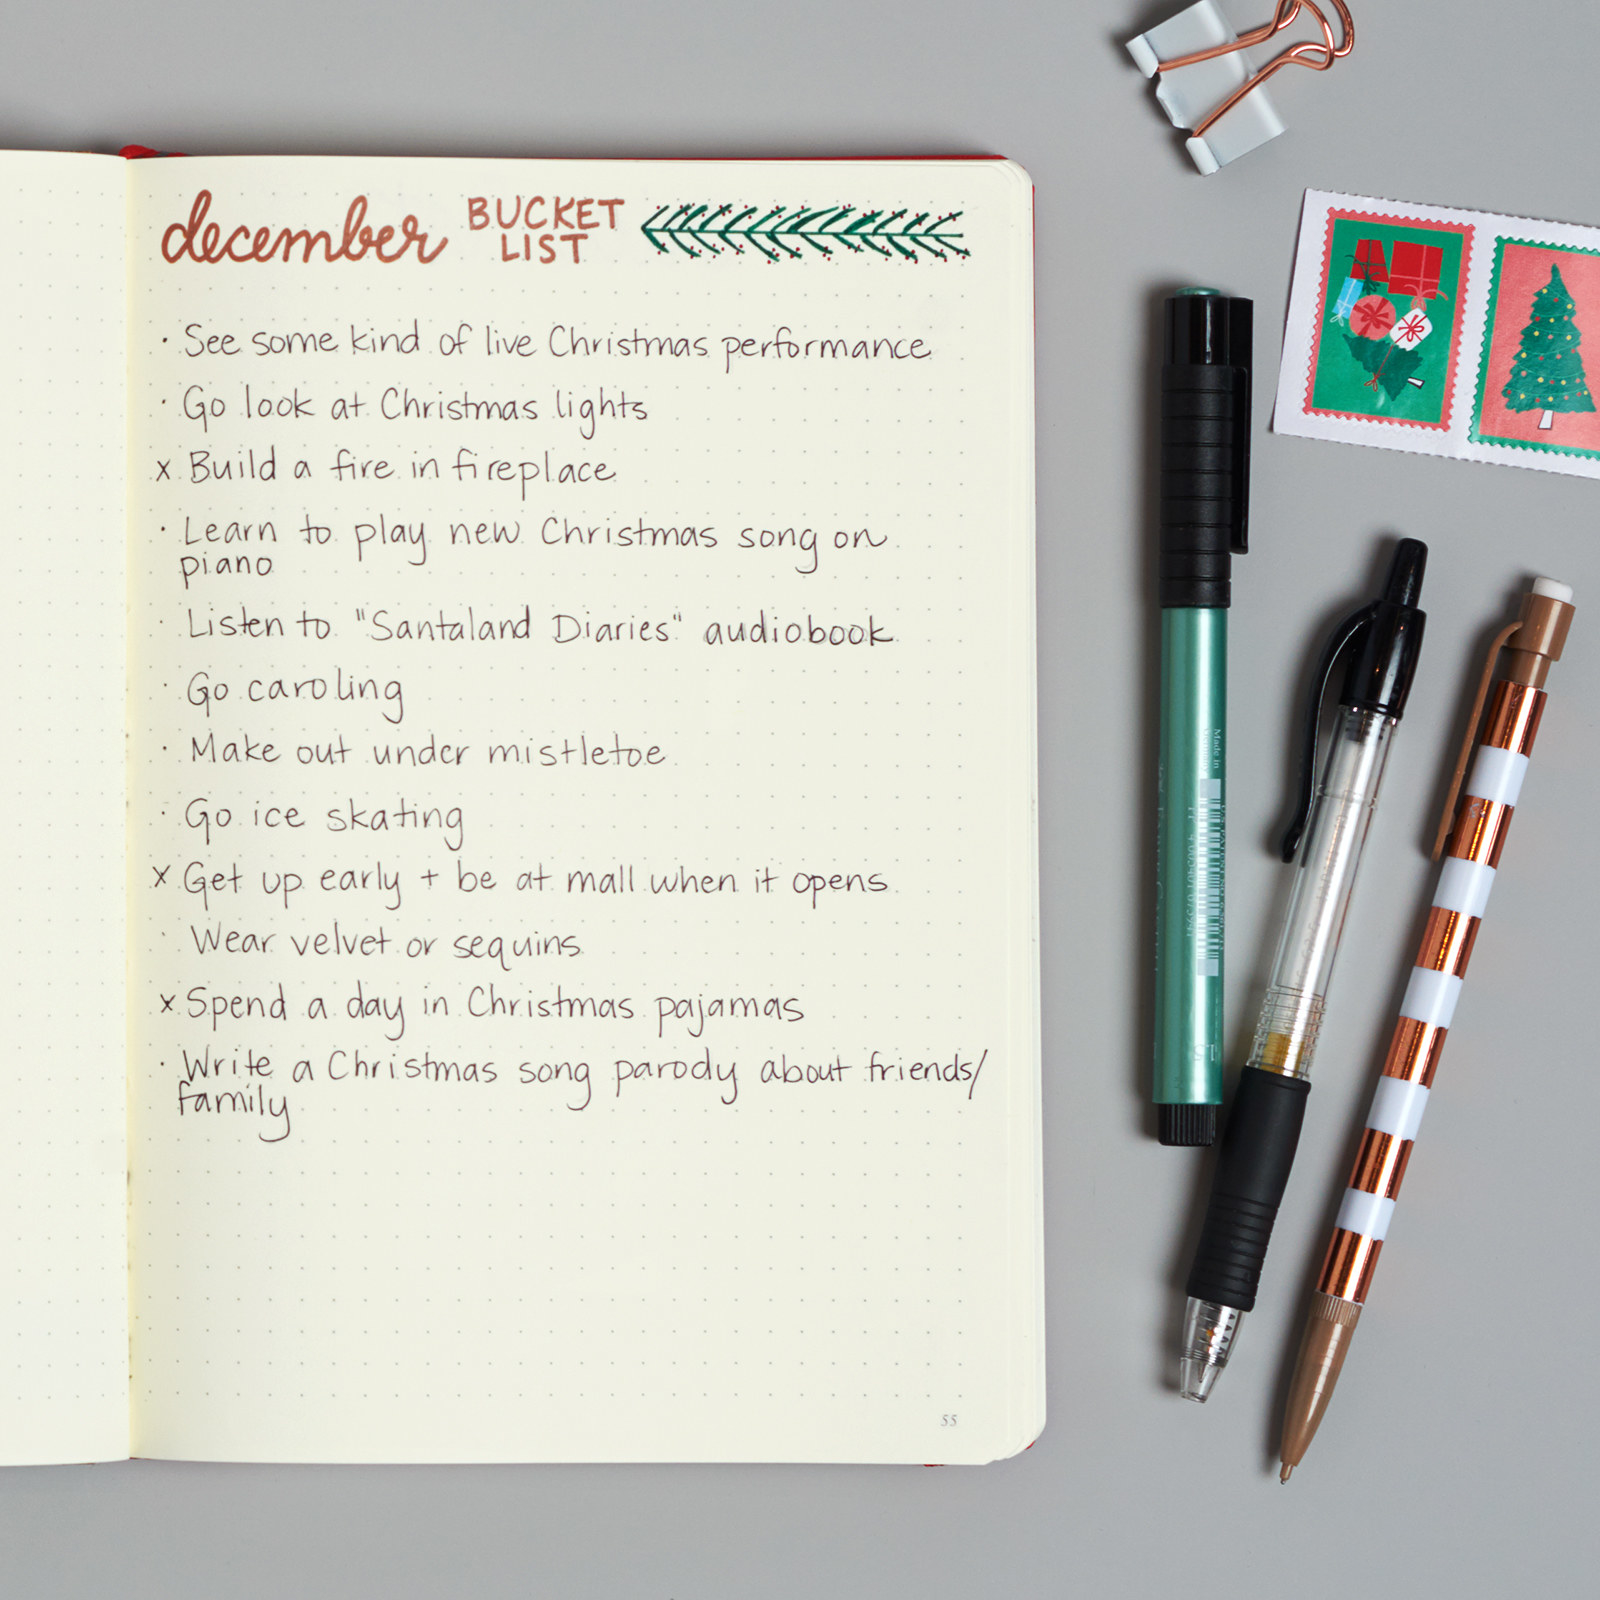 december BUCKET
LIST
· See some kind of live Christmas performance
· Go look at Christmas lights
x Build a fire in fireplace
· Learn to play new Christmas song on
piano
· Listen to "Santaland Diaries" audiobook
· Go caroling
· Make out under mistletoe
· Go ice skating
x Get up early + be at mall when it opens
· Wear velvet or sequins
x Spend a day in Christmas pajamas
· Write a Christmas song parody about friends/
family
55
Made in